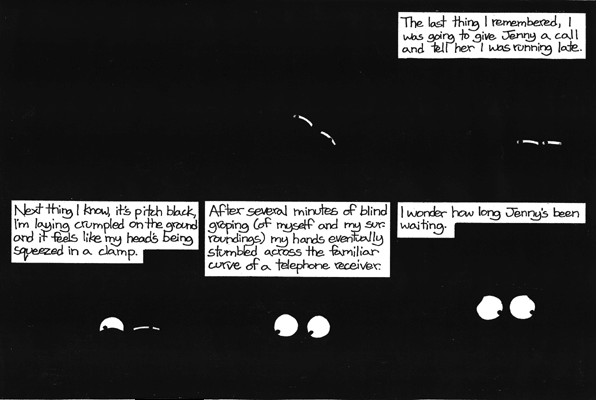 The last thing I remembered, I
was going to give Jenny a call
and tell her I was running late.
Next thing I know, it's pitch black,
I'm laying crumpled on the ground
and it feels like my head's being
squeezed in a clamp.
After several minutes of blind
groping (of myself and my sur-
roundings) my hands eventually
stumbled across the familiar
curve of a telephone receiver.
I wonder how long Jenny's been
waiting.